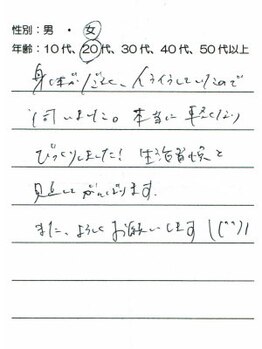 性別：男 ・ 女
年齢：10代、20代、30代、40代、50代以上
身体がだるく、イライラしていたので
伺いました。本当に軽くなり
びっくりしました！ 生活習慣を
見直してがんばります。
また、よろしくお願いします (^^)